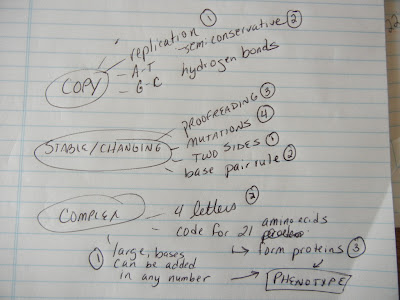 replication ①
semi-conservative ②
A-T
hydrogen bonds
G-C
COPY
PROOFREADING ③
MUTATIONS ④
STABLE/CHANGING
TWO SIDES ①
base pair rule ②
COMPLEX
4 letters ②
amino acids
code for 21
① large, bases
form proteins ③
can be added
in any number
PHENOTYPE